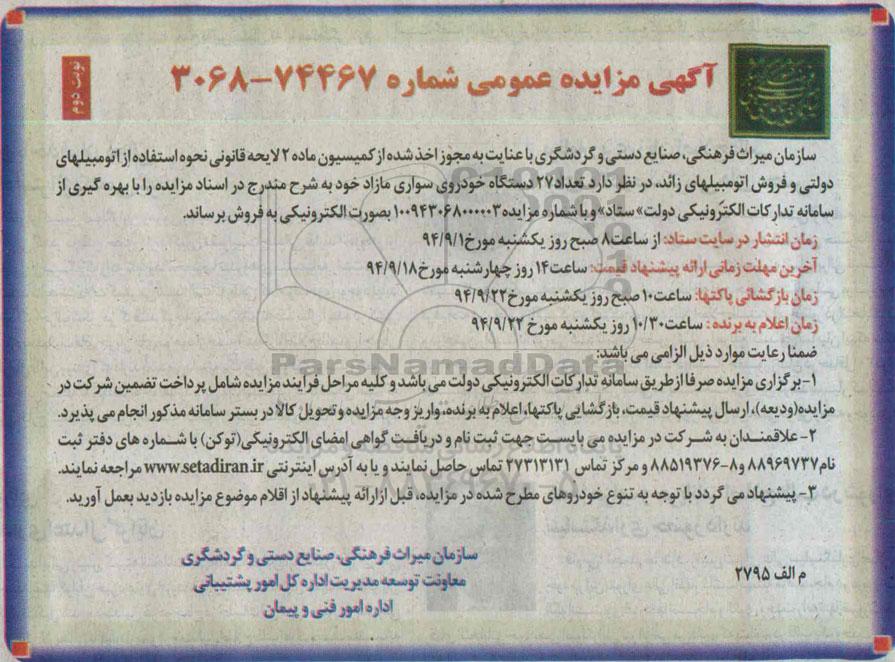 آگهی مزایده عمومی شماره ۷۴۴۶۷-۳۰۶۸
نوبت دوم
سازمان میراث فرهنگی، صنایع دستی و گردشگری با عنایت به مجوز اخذ شده از کمیسیون ماده ۲ لایحه قانونی نحوه استفاده از اتومبیلهای
دولتی و فروش اتومبیلهای زائد، در نظر دارد تعداد۲۷ دستگاه خودروی سواری مازاد خود به شرح مندرج در اسناد مزایده را با بهره گیری از
سامانه تدارکات الکترونیکی دولت» ستاد» و با شماره مزایده ۱۰۰۹۴۳۰۶۸۰۰۰۰۰۳ بصورت الکترونیکی به فروش برساند.
زمان انتشار در سایت ستاد: از ساعت۸ صبح روز یکشنبه مورخ۹۴/۹/۱
آخرین مهلت زمانی ارائه پیشنهاد قیمت: ساعت۱۴ روز چهارشنبه مورخ۹۴/۹/۱۸
زمان بازگشائی پاکتها: ساعت۱۰ صبح روز یکشنبه مورخ۹۴/۹/۲۲
زمان اعلام به برنده : ساعت۱۰/۳۰ روز یکشنبه مورخ ۹۴/۹/۲۲
ضمنا رعایت موارد ذیل الزامی می باشد:
ParsNamadData
۱-برگزاری مزایده صرفا ازطریق سامانه تدارکات الکترونیکی دولت می باشد و کلیه مراحل فرایند مزایده شامل پرداخت تضمین شرکت در
مزایده(ودیعه)، ارسال پیشنهاد قیمت، بازگشایی پاکتها، اعلام به برنده، واریز وجه مزایده و تحویل کالا در بستر سامانه مذکور انجام می پذیرد.
۲- علاقمندان به شرکت در مزایده می بایست جهت ثبت نام و دریافت گواهی امضای الکترونیکی(توکن) با شماره های دفتر ثبت
نام۸۸۹۶۹۷۳۷ و۸-۸۸۵۱۹۳۷۶ و مرکز تماس ۲۷۳۱۳۱۳۱ تماس حاصل نمایند و یا به آدرس اینترنتی www.setadiran.ir مراجعه نمایند.
۳- پیشنهاد می گردد با توجه به تنوع خودروهای مطرح شده در مزایده، قبل ازارائه پیشنهاد از اقلام موضوع مزایده بازدید بعمل آورید.
سازمان میراث فرهنگی، صنایع دستی و گردشگری
معاونت توسعه مدیریت اداره کل امور پشتیبانی
اداره امور فنی و پیمان
م الف ۲۷۹۵